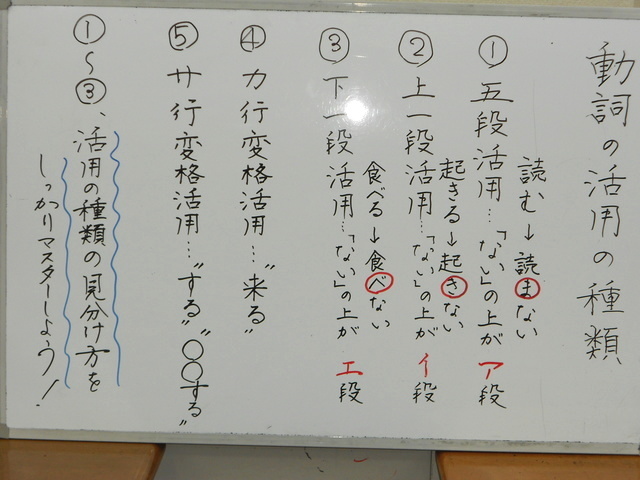 動詞の活用の種類
読む→読まない
①五段活用…「ない」の上がア段
起きる→起きない
②上一段活用…「ない」の上がイ段
食べる→食べない
③下一段活用…「ない」の上がエ段
④カ行変格活用…〝来る〟
⑤サ行変格活用…〝する〟〝○○する〟
①〜③、活用の種類の見分け方を
しっかりマスターしよう!